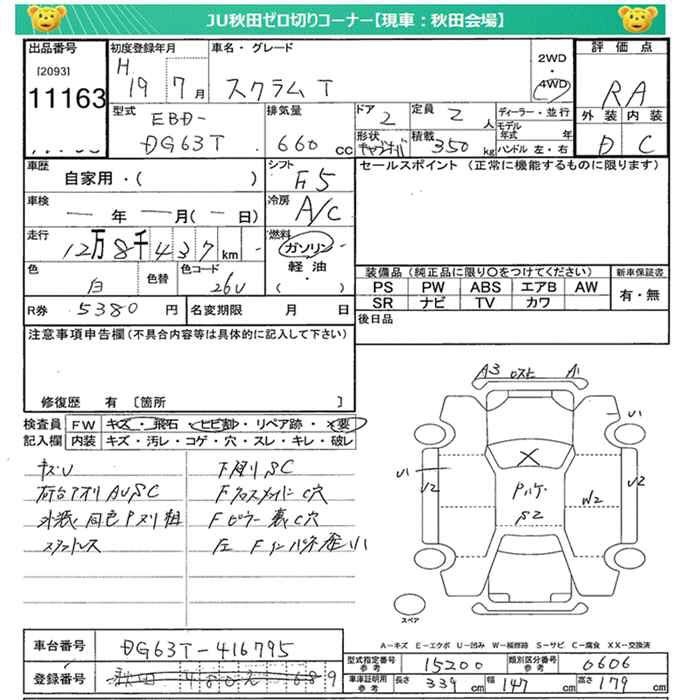 JU秋田ゼロ切りコーナー【現車：秋田会場】
出品番号
[2093]
11163
初度登録年月
H 19 7月
車名・グレード
スクラム T
2WD
・
4WD
評価点
RA
外装 内装
D C
型式
EBD-
DG63T
排気量
660 cc
ドア
2
定員
2人
ディーラー・並行
モデル
年式 年
形状
積載
350 kg
ハンドル 左・右
車歴
自家用・( )
シフト
F5
セールスポイント (正常に機能するものに限ります)
車検
― 年 ― 月(― 日)
冷房
A/C
走行
12万8千437km
燃料
ガソリン
軽油
・( )
色
白
色替
色コード
26U
装備品 (純正品に限り○をつけてください)
新車保証書
PS PW ABS エアB AW
SR ナビ TV カワ
有・無
R券 5380円
名変期限 月 日
後日品
注意事項申告欄 (不具合内容等は具体的に記入して下さい)
修復歴 有 [箇所 ]
検査員
記入欄
FW キズ・飛石・ヒビ割・リペア跡・×要
内装 キズ・汚レ・コゲ・穴・スレ・キレ・破レ
キズU
下廻りSC
荷台アオリ AUSC
Fクロスメンバー C穴
Fピラー裏C穴
A3 A1
U1
U1
U2
U2
W2
S2
スペア
A－キズ E－エクボ U－凹み W－補修跡 S－サビ C－腐食 XX－交換済
車台番号 DG63T-416795
登録番号 秋田 480 689
型式指定番号
参考
15200
類別区分番号
参考
0606
車庫証明用
参考
長さ 339cm 幅 147cm 高さ 179cm